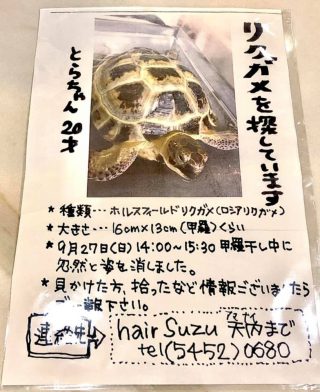 リクガメを探しています
とらちゃん 20才
* 種類・・・ホルスフィールドリクガメ(ロシアリクガメ)
* 大きさ・・・16cm×13cm(甲羅)くらい
* 9月27日(日)14:00~15:30 甲羅干し中に
忽然と姿を消しました。
* 見かけた方、拾ったなど情報ございましたら
ご一報下さい。
連絡先 hair Suzu 天内まで
tel(5452)0680